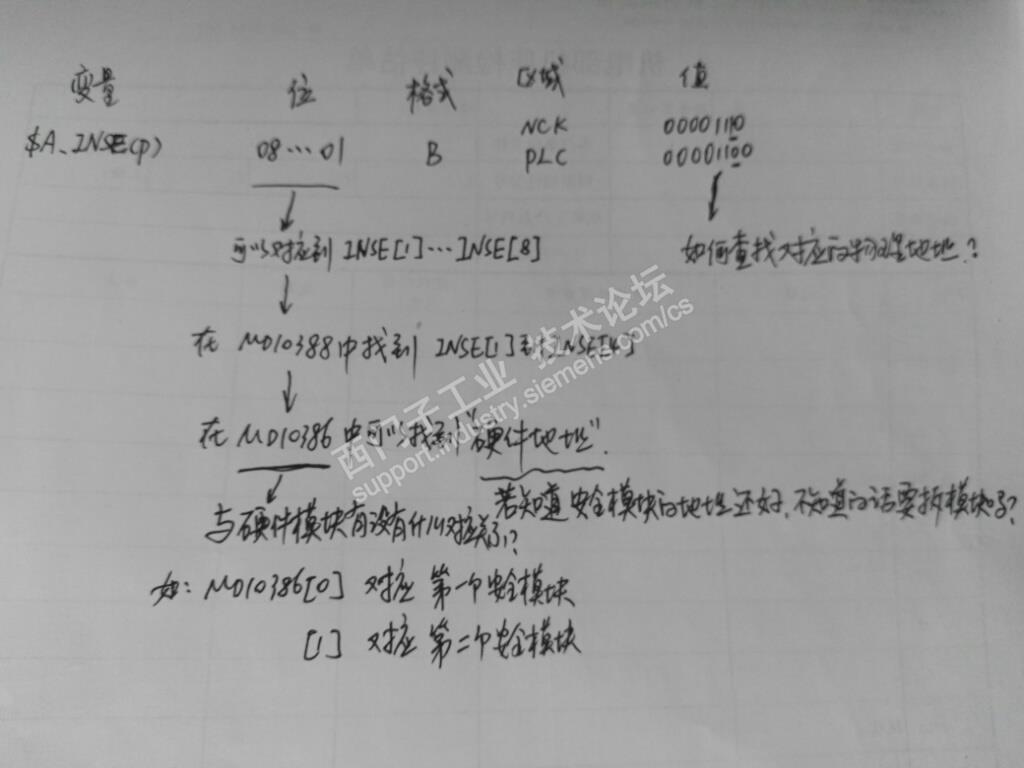 变量 位 格式 区域 值
NCK 00001110
$A_INSE(P) 08…01 B PLC 00001100
可以对应到 INSE[1]…INSE[8]
如何查找对应的物理地址？
在 MD10388中找到 INSE[1]到INSE[4]
在 MD10386 中可以找到"硬件地址".
若知道安全模块的地址还好，不知道的话要拆模块了？
与硬件模块有没有什么对应关系？
如：MD10386[0] 对应 第一个安全模块
[1] 对应 第二个安全模块
西门子工业 技术论坛
support.industry.siemens.com/cs